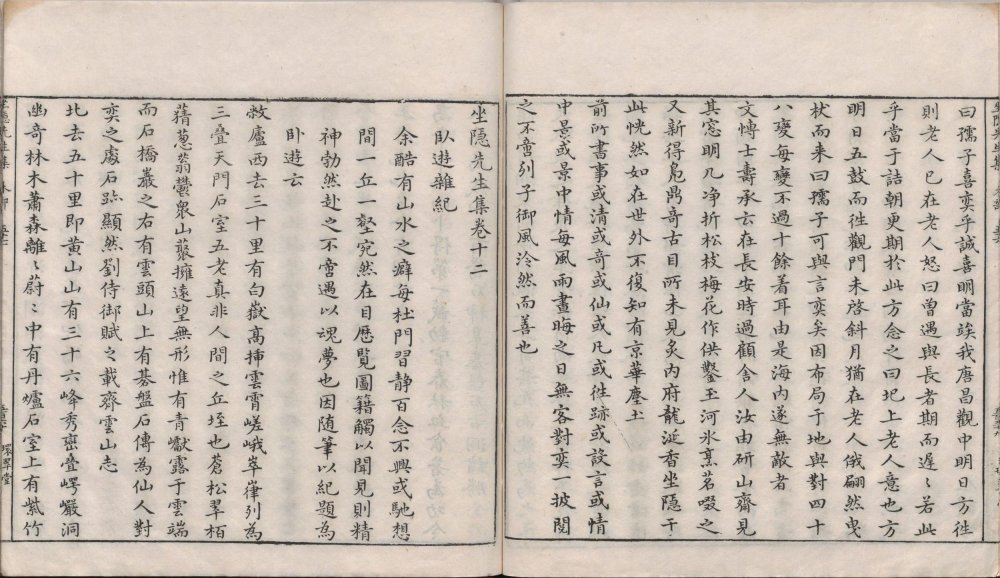 曰孺子喜奕乎誠喜明當竢我唐昌觀中明日方徃
則老人已在老人怒曰曾遇與長者期而遲〻若此
乎當于詰朝更期於此方念之曰圯上老人意也方
明日五鼓而徃觀門未啓斜月猶在老人俄翩然曳
杖而来曰孺子可與言奕矣因布局于地與對四十
八變每變不過十餘着耳由是海內遂無敵者
文愽士壽承云在長安時過顧舍人汝由研山齋見
其窓明几净折松枝梅花作供鑿玉河氷烹茗啜之
又新得鳧鼎奇古目所未見炙內府龍涎香坐隐于
此恍然如在世外不復知有京華塵土
前所書事或清或奇或仙或凡或徃跡或設言或情
中景或景中情每風雨晝晦之日無客對奕一披閱
之不啻列子御風泠然而善也
坐隐先生集卷十二
臥遊雜紀
余酷有山水之癖每杜門習静百念不興或馳想
間一丘一壑宛然在目歴覧圖籍觸以聞見則精
神勃然赴之不啻遇以魂夢也因随筆以紀題為
卧遊云
敝廬西去三十里有白嶽高揷雲霄嵯峨崒嵂列為
三疊天門石室五老真非人間之丘垤也蒼松翠栢
蒨葱蓊鬱衆山蘂擁遠望無形惟有青巘露于雲端
而石橋巖之右有雲頭山上有棊盤石傳為仙人對
奕之處石跡顯然劉侍御賦之載齊雲山志
北去五十里即黄山山有三十六峰秀巒叠崿巖洞
幽奇林木蕭森離〻蔚〻中有丹爐石室上有紫竹
環翠堂